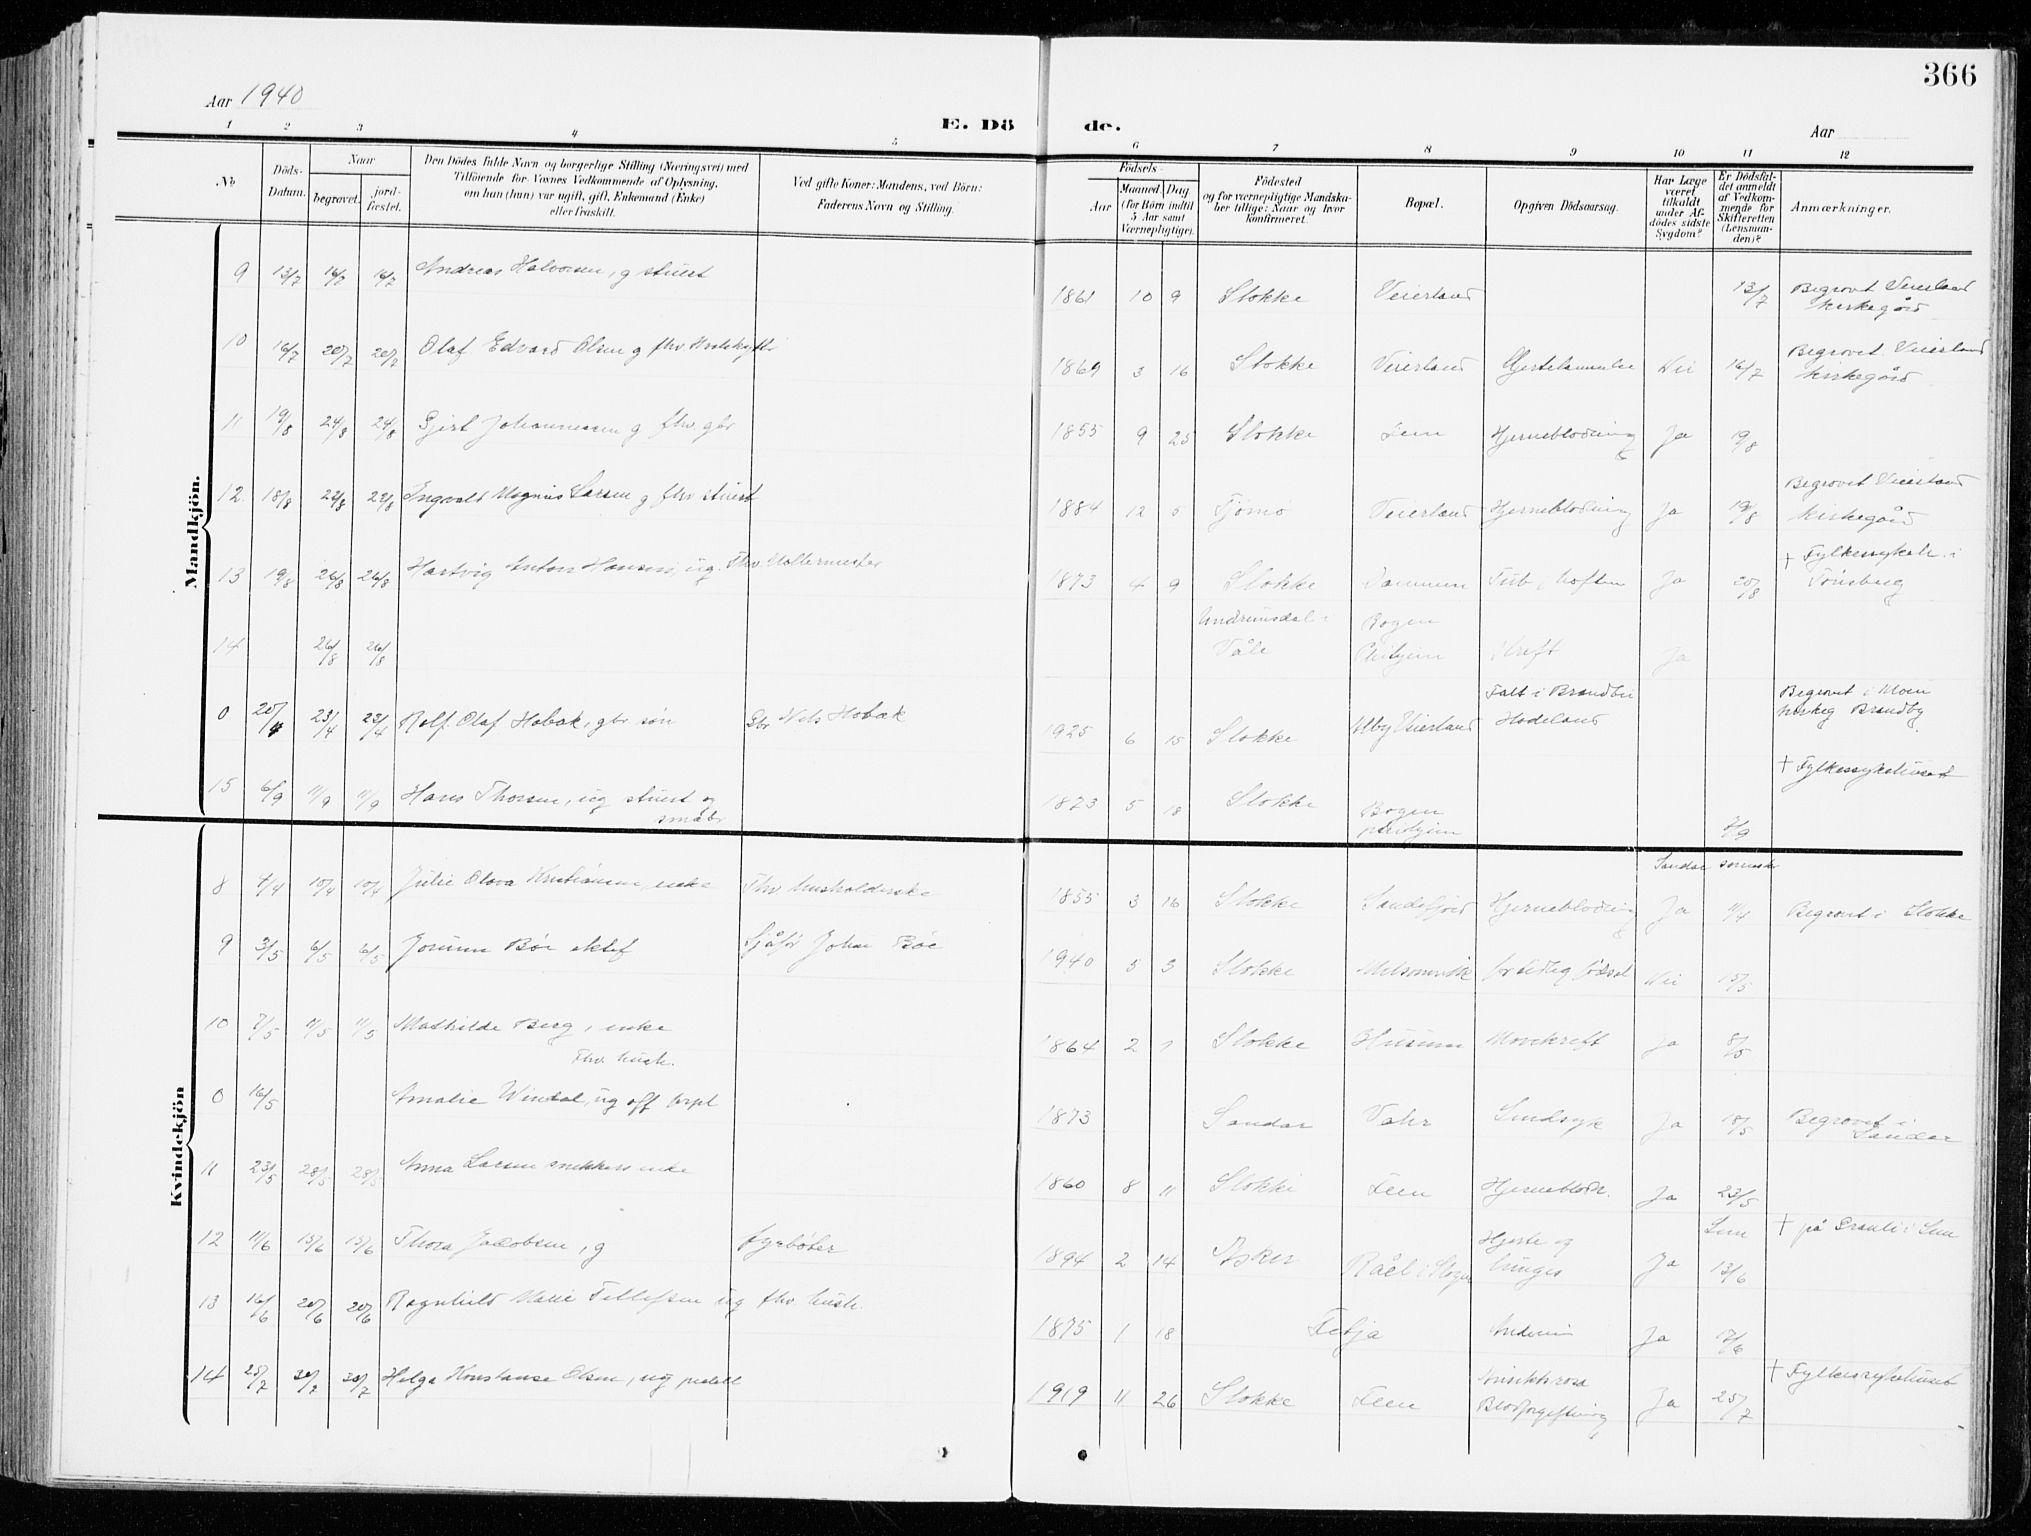 366
Aar 1940
E. Döde.
Aar
1 2 3 4 5 6 7 8 9 10 11 12
No
Döds-Datum.
Naar
begravet.
jord-fæstet.
Den Dödes fulde Navn og borgerlige Stilling (Næringsvei) med
Tilföiende for Voxnes Vedkommende af Oplysning,
om han (hun) var ugift, gift, Enkemand (Enke)
eller fraskilt.
Ved gifte Koner: Mandens, ved Börn:
Faderens Navn og Stilling.
Födsels-
Aar
Maaned. Dag
(for Börn indtil
5 Aar samt
Værnepligtige).
Födested
og for værnepligtige Mandska-
ber tillige: Naar og hvor
konfirmeret.
Bopæl.
Opgiven Dödsaarsag.
Har Læge
været
tilkaldt
under Af-
dödes sidste
Sygdom?
Er Dödsfal-
det anmeldt
af Vedkom-
mende for
Skifteretten
(Lensman-
den)?
Anmærkninger.
Mandkjön.
9 13/7 14/7 14/7 Andreas Halvorsen, g stuert 1861 10 9 Stokke Veierland 13/7 Begravet Veierland
kirkegård
10 16/7 20/7 20/7 Olaf Edvard Olsen g fhv. 1869 3 16 Stokke Veierland Hjertelammelse Nei 16/7 Begravet Veierland
kirkegård
11 19/8 24/8 24/8 Gjert Johannessen g fhv. gbr 1855 9 25 Stokke Feen Hjerneblødning Ja 19/8
12. 18/8 22/8 22/8 Ingvald Magnus Larsen g fhv stuert 1884 12 5 Tjømø Veierland Hjerneblødning Ja 19/8 Begravet Veierland
kirkegård
13 19/8 26/8 26/8 Hartvig Anton Hansen, ug. Fhv. Mottermester 1873 4 9 Stokke Tub. i hoften Ja 20/8 + Fylkessykeh. i
Tønsberg
14 26/8 26/8 Undrumsdal i
Våle Bogen
Pleihjem Kreft Ja
0 20/4 23/4 23/4 Rolf Olaf Hobæk, gbr søn Gbr Nels Hobæk 1925 6 15 Stokke Veierland Falt i Brandbu
Hadeland Begravet i Moen
kirkeg Brandby
15 6/9 11/9 11/9 Hans Thorsen, ug stuert og
småbr 1873 5 18 Stokke Bogen
pleihjem 7/9 + Fylkessykehuset
Kvindekjön
8 4/4 10/4 10/4 Julie Olava Kristiansen, enke Fhv husholderske 1855 3 16 Stokke Sandefjord Hjerneblødning Ja Sandar 11/4 Begravet i Stokke
9 3/5 6/5 6/5 Jorunn Bøe ektef Sjåfør Johan Bøe 1940 5 3 Stokke Melsomvik for tidlig fødsel Nei 15/5
10 7/5 11/5 11/5 Mathilde Berg, enke
Fhv. hush. 1864 2 1 Stokke Husum Mavekreft Ja 8/5
0 16/5 Amalie Windal, ug off forpl 1873 Sandar Vahr Sindsyk Ja 18/5 Begravet i
Sandar
11 23/5 28/5 28/5 Anna Larsen snekkers enke 1860 8 11 Stokke Feen Hjerneblødn. Ja 23/5
12 11/6 15/6 15/6 Thora Jacobsen, g fyrbøter 1894 2 14 Asker Råel i Slagen Hjerte og
lunges Ja Sem
13/6 + på Granli i Sem
13 16/6 20/6 20/6 Ragnhild Marie Tellefsen ug fhv. hush. 1875 1 18 Fetja Ja 17/6
14 25/7 30/7 30/7 Helga Konstanse Olsen, ug 1919 11 26 Stokke Feen Ansiktsrosa
Blodforgiftning Ja 25/7 + Fylkessykehuset